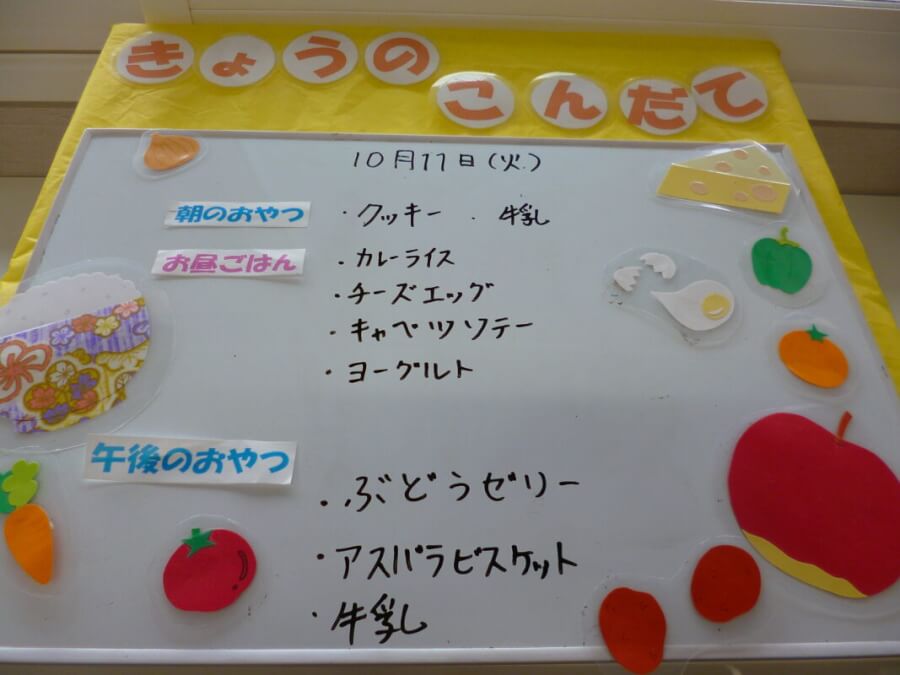 きょうの
こんだて
10月11日(火)
朝のおやつ ・クッキー ・牛乳
お昼ごはん ・カレーライス
・チーズエッグ
・キャベツソテー
・ヨーグルト
午後のおやつ
・ぶどうゼリー
・アスパラビスケット
・牛乳